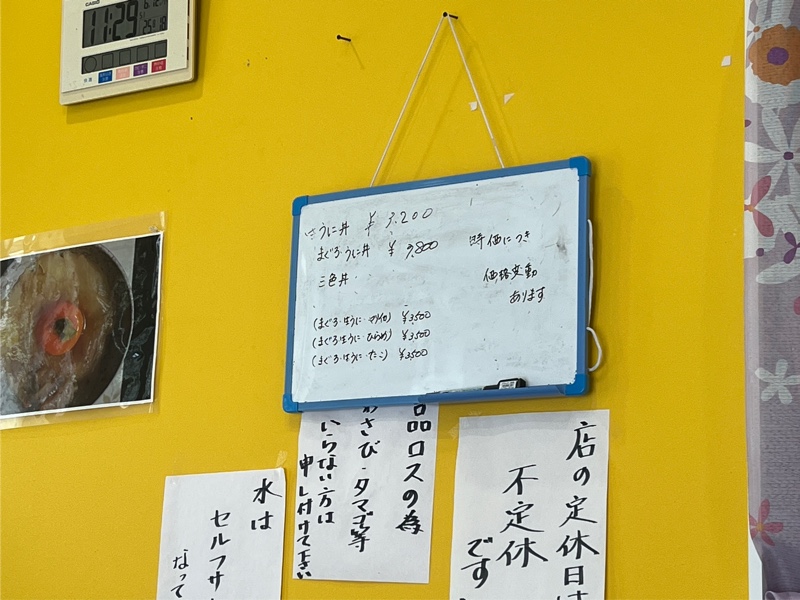 CASIO
11:29
うに丼 ¥ 3,200
まぐろ・うに丼 ¥ 3,800
三色丼
時価につき
価格変動
あります
(まぐろ・ほうに・ ) ¥3,500
(まぐろ・ほうに・ひらめ) ¥3,500
(まぐろ・ほうに・たこ) ¥3,500
品ロスの為
わさび・タマゴ等
いらない方は
申し付けて下さい
店の定休日は
不定休
です
水は
セルフサ
なって